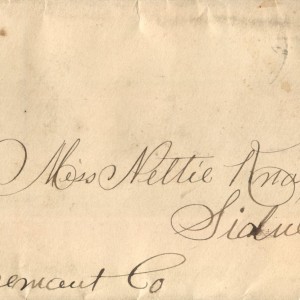 Miss Nettie Kno
Sidne
remont Co